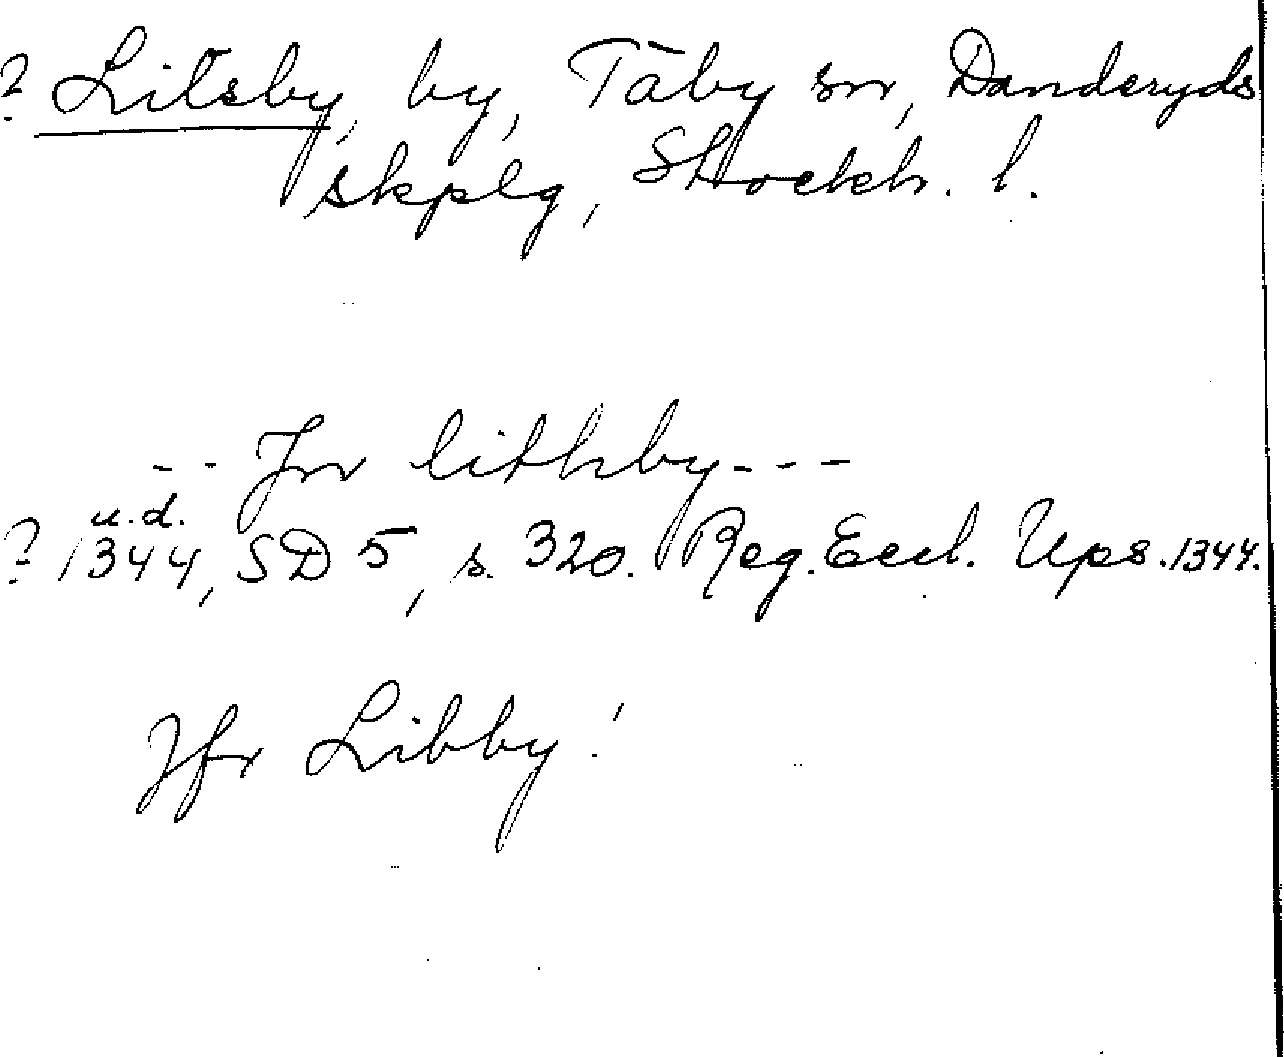 ? Litsby, by, Täby sn, Danderyds
skplg, Stockh. l.
-- Jn lithby ---
u.d.
? 1344, SD 5, s. 320. Reg. Eccl. Ups. 1344.
Jfr Libby!